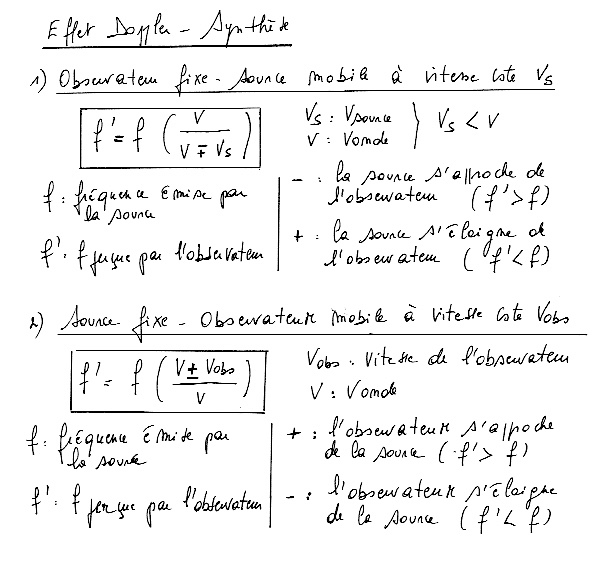 Effet Doppler - Synthèse
1) Observateur fixe - Source mobile à vitesse cste Vs
f' = f ( V / V ∓ Vs )
Vs : Vsource
V : Vonde
} Vs < V
f : fréquence émise par
la source
f' : f perçue par l'observateur
- : la source s'approche de
l'observateur (f' > f)
+ : la source s'éloigne de
l'observateur (f' < f)
2) Source fixe - Observateur mobile à vitesse cste Vobs
f' = f ( V ± Vobs / V )
Vobs : Vitesse de l'observateur
V : Vonde
f : fréquence émise par
la source
f' : f perçue par l'observateur
+ : l'observateur s'approche
de la source (f' > f)
- : l'observateur s'éloigne
de la source (f' < f)